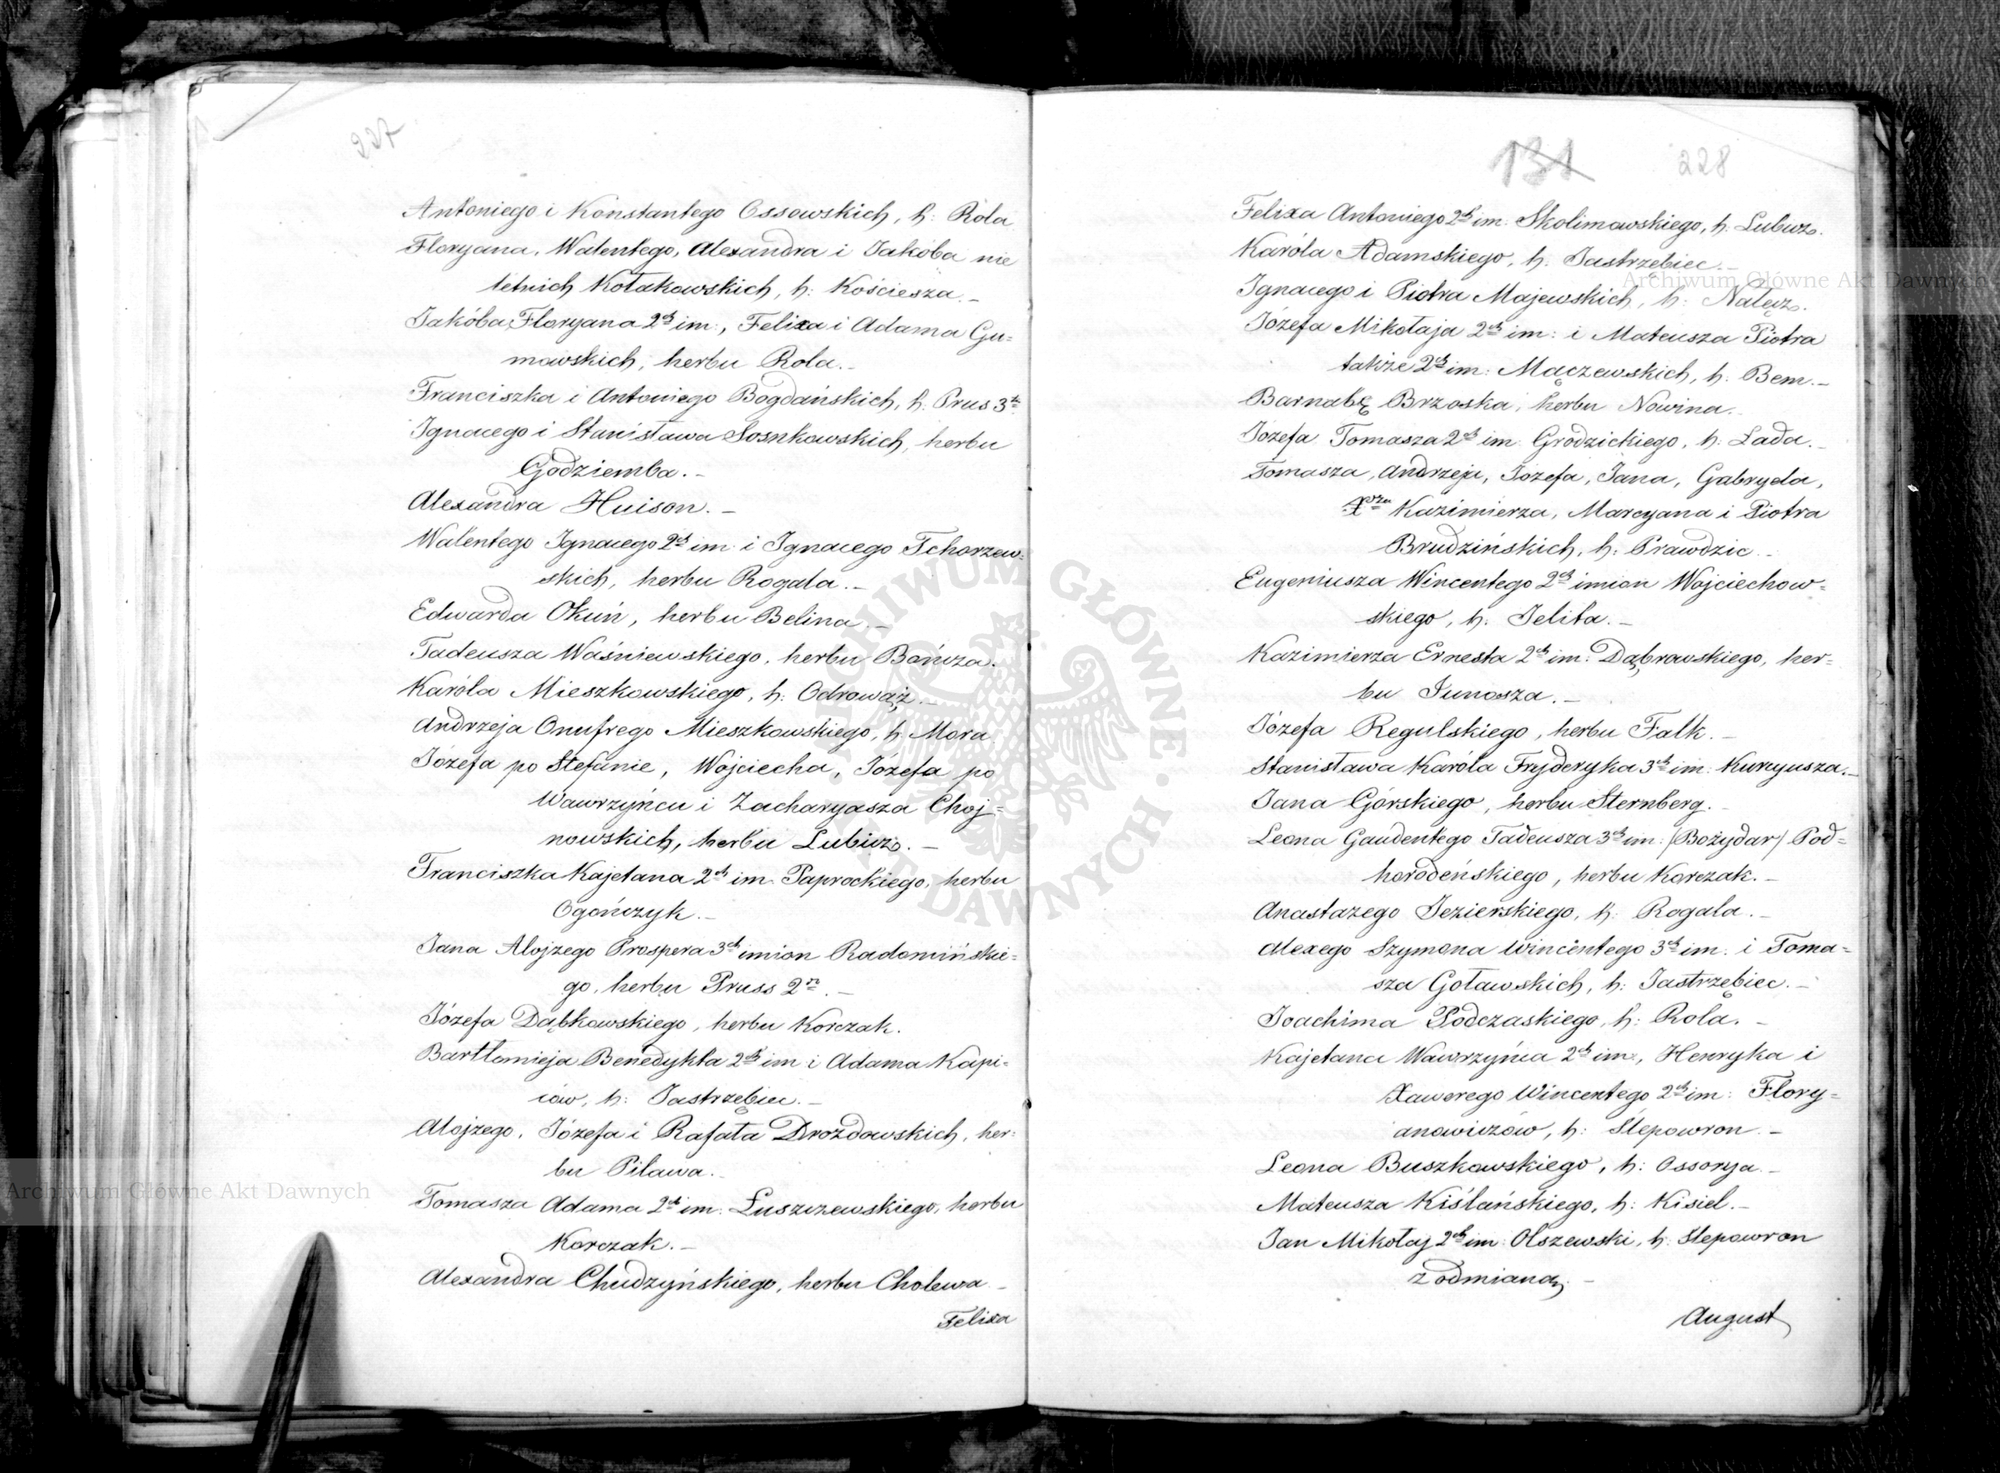 227
Antoniego i Konstantego Ossowskich, h: Rola
Floryana, Walentego, Alexandra i Jakóba nie
letnich Kołakowskich, h: Kościesza. –
Jakóba Floryana 2ch im:, Felixa i Adama Gu=
mowskich, herbu Rola. –
Franciszka i Antoniego Bogdańskich, h: Prus 3°
Ignacego i Stanisława Sosnkowskich, herbu
Godziemba. –
Alexandra Huison. –
Walentego Ignacego 2ch im: i Ignacego Tchorzew=
skich, herbu Rogala. –
Edwarda Okuń, herbu Belina. –
Tadeusza Waśniewskiego, herbu Bończa.
Karóla Mieszkowskiego, h: Odrowąż. –
Andrzeja Onufrego Mieszkowskiego, h: Mora
Józefa po Stefanie, Wojciecha, Józefa po
Wawrzyńcu i Zacharyasza Choj=
nowskich, herbu Lubicz. –
Franciszka Kajetana 2ch im: Paprockiego, herbu
Ogończyk. –
Jana Alojzego Prospera 3ch imion Radomińskie=
go, herbu Pruss 2°. –
Józefa Dąbkowskiego, herbu Korczak.
Bartłomieja Benedykta 2ch im i Adama Kapi=
ców, h: Jastrzębiec. –
Alojzego, Józefa i Rafała Drozdowskich, her=
bu Pilawa. –
Tomasza Adama 2ch im: Łuszczewskiego, herbu
Korczak. –
Alexandra Chudzyńskiego, herbu Cholewa –
Felixa
131 228
Felixa Antoniego 2ch im: Skolimowskiego, h: Lubicz.
Karóla Adamskiego, h. Jastrzębiec. –
Ignacego i Piotra Majewskich, h: Nałęcz.
Józefa Mikołaja 2ch im: i Mateusza Piotra
także 2ch im: Mączewskich, h: Bem. –
Barnabę Brzoska, herbu Nowina. –
Józefa Tomasza 2ch im: Grodzickiego, h: Łada. –
Tomasza, Andrzeja, Józefa, Jana, Gabryela,
Kazimierza, Marcyana i Piotra
Brudzińskich, h: Prawdzic –
Eugeniusza Wincentego 2ch imion Wojciechow=
skiego, h. Jelita. –
Kazimierza Ernesta 2ch im: Dąbrowskiego, her=
bu Junosza. –
Józefa Regulskiego, herbu Falk. –
Stanisława Karóla Fryderyka 3ch im: Kurcyusza. –
Jana Górskiego, herbu Sternberg. –
Leona Gaudentego Tadeusza 3ch im: /Bożydar/ Pod=
horodeńskiego, herbu Korczak. –
Anastazego Jezierskiego, h: Rogala. –
Alexego Szymona Wincentego 3ch im. i Toma=
sza Goławskich, h: Jastrzębiec. –
Joachima Podczaskiego, h: Rola. –
Kajetana Wawrzyńca 2ch im:, Henryka i
Xawerego Wincentego 2ch im: Flory=
anowiczów, h: Ślepowron –
Leona Buszkowskiego, h: Ossorya. –
Mateusza Kiślańskiego, h: Kisiel. –
Jan Mikołaj 2ch im: Olszewski, h: Ślepowron
z odmianą. –
August
Archiwum Główne Akt Dawnych
Archiwum Główne Akt Dawnych
ARCHIWUM GŁÓWNE AKT DAWNYCH